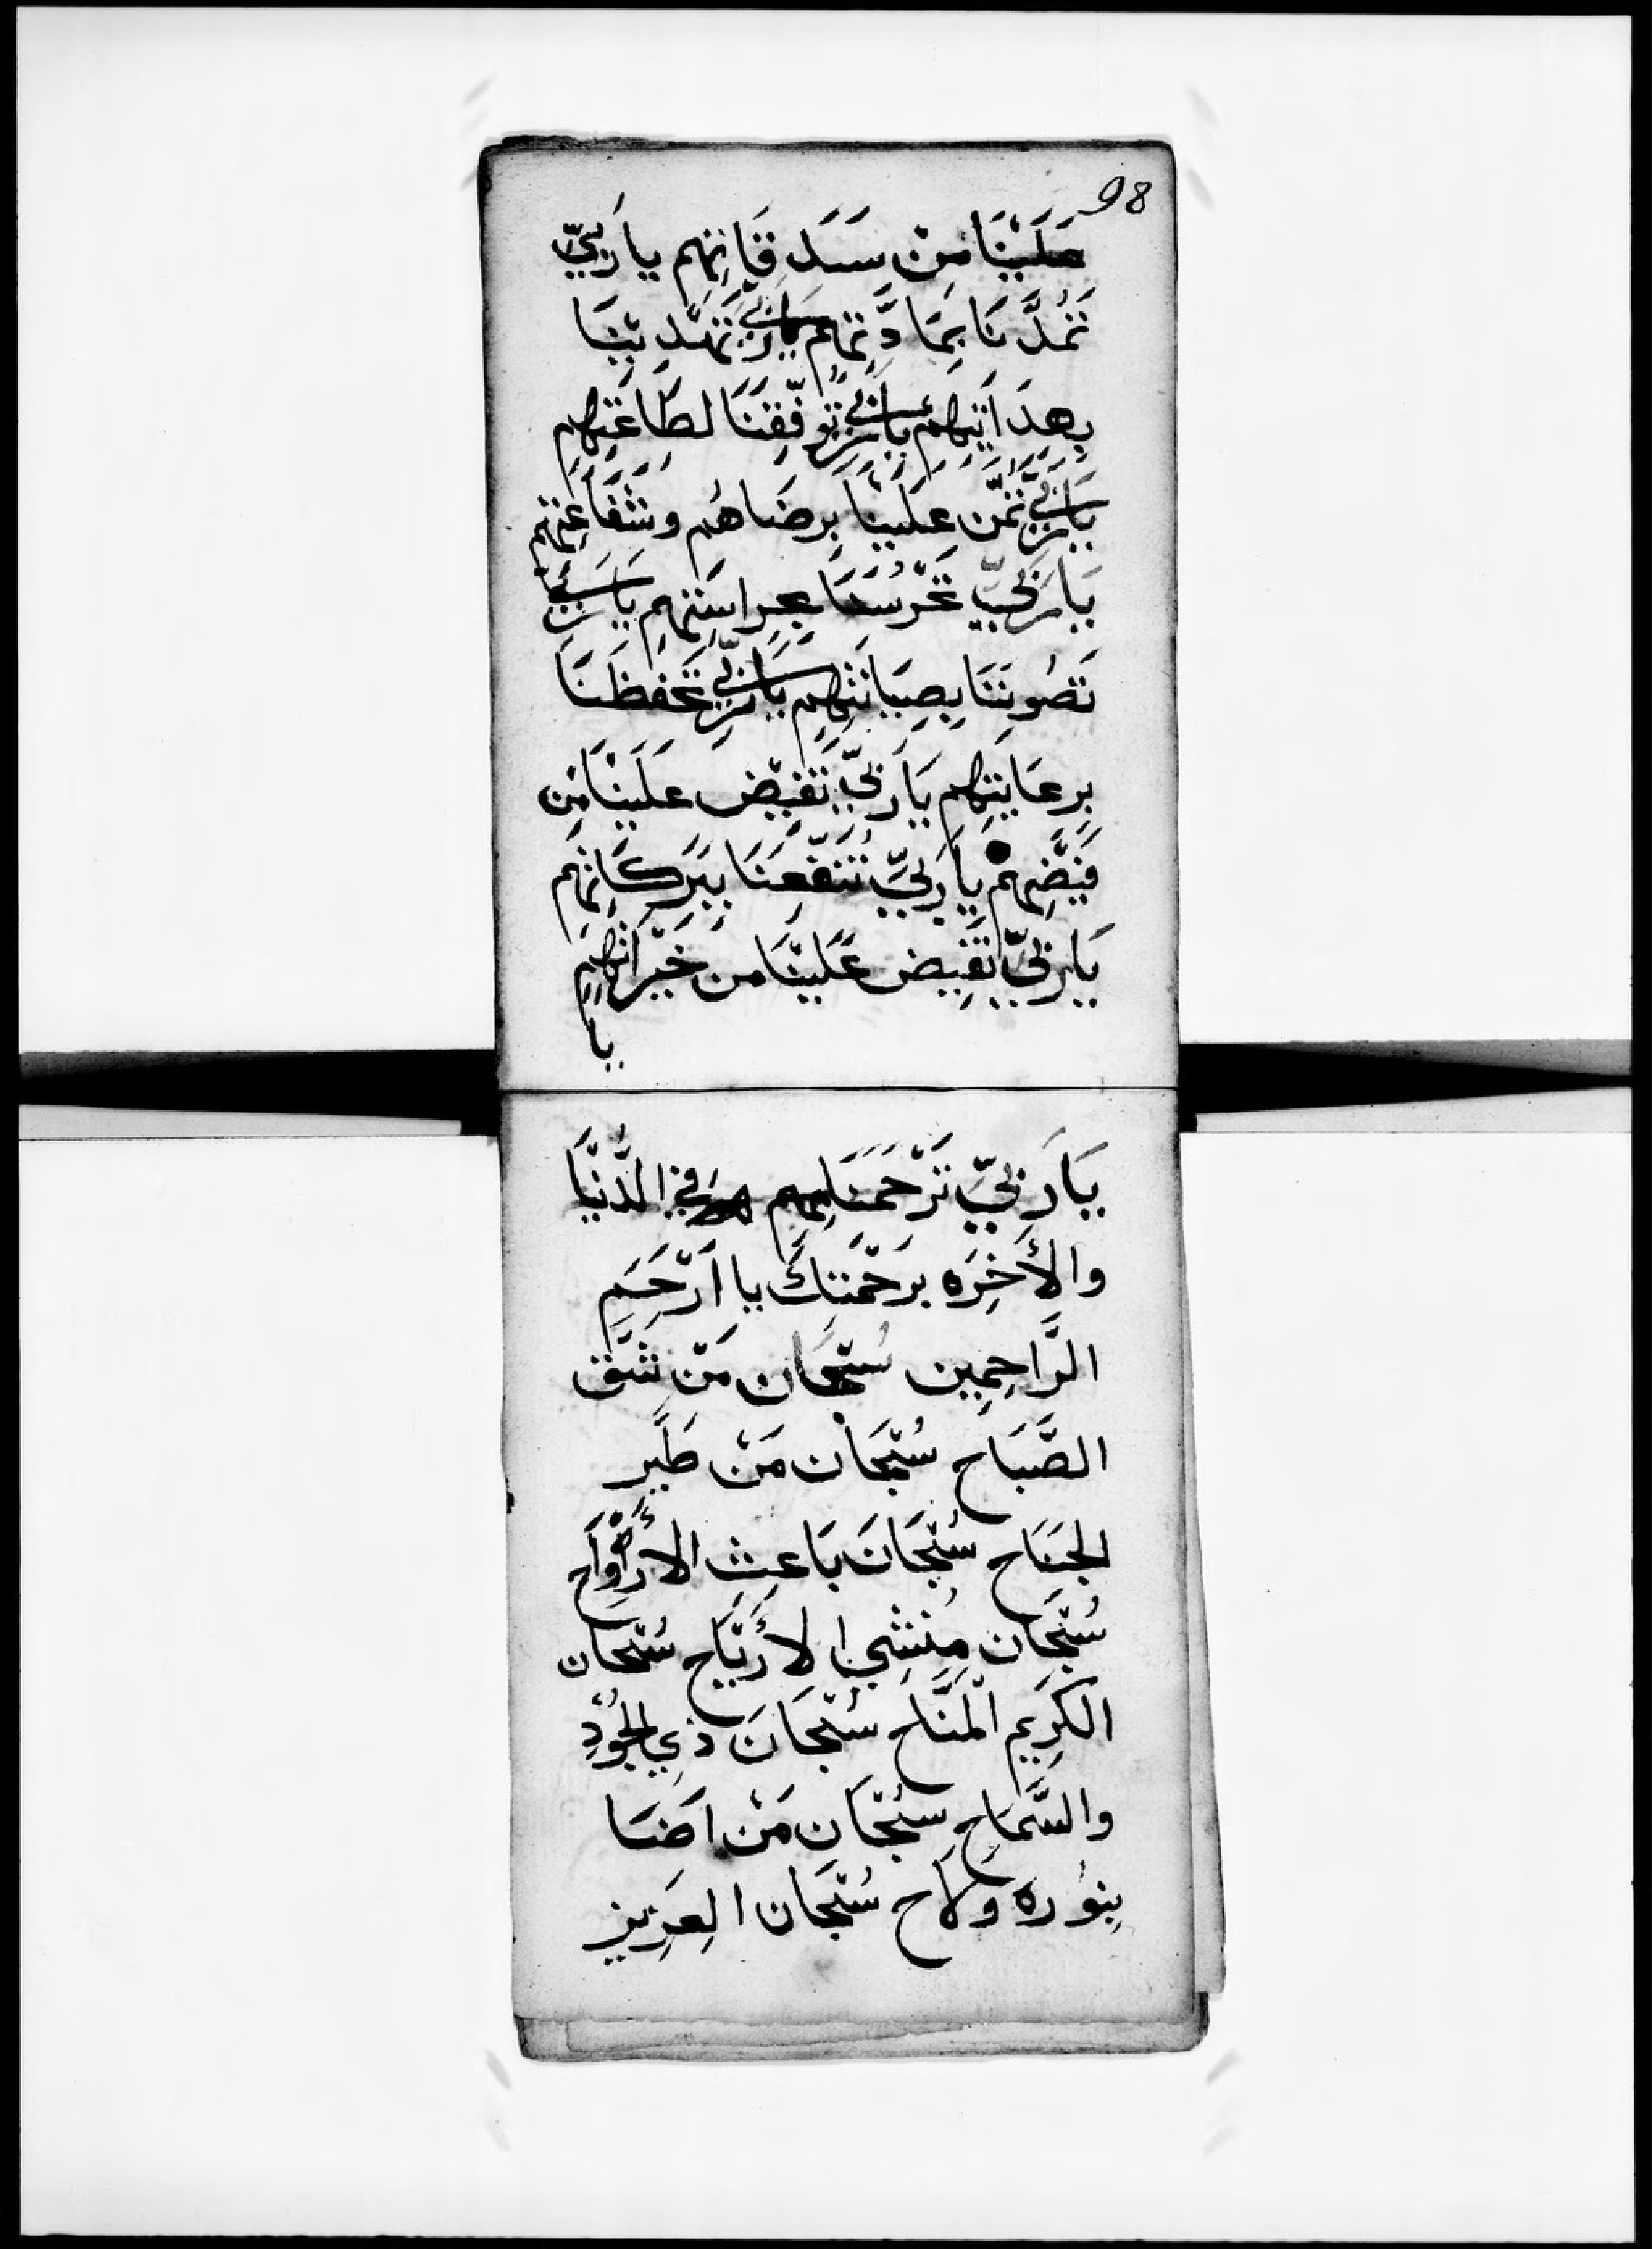 98
علَيْنَا مِنْ سَدَقَاتِهِم يا رَبِّي
تَمُدَّنَا بِمَادَّتِهِم يَا رَبِّي تَهْدِيْنَا
بِهِدَايَتِهِم يَا رَبِّي تُوَفِّقِنَا لطَاعَتِهِم
يَا رَبِّي تَمُنّ عَلَيْنَا بِرِضَاهُم وشَفَاعَتِهِم
يَا رَبِّي تَحْرُسَنَا بحراسَتِهِم يَا رَبِّي
تَصُونَنَا بِصِيَانَتِهِم يَا رَبِّي تَحْفَظَنَا
بِرِعَايَتِهِم يَا رَبِّي تَفِيْض عَلَيْنَا مِن
فَيْضِهِمْ يَا رَبِّي تَنْفَعَنَا بِبَرَكَاتِهِم
يَا رَبِّي تَفِيض عَلَيْنَا من خَيْرَاتِهِم
يا
يَا رَبِّي تَرْحَمَنَا بِهِم في الدُّنْيَا
والأَخِرَه بِرَحْمَتِكَ يا اَرْحَمِ
الرَّاحِمِين سُبْحَان مَنْ شَقّ
الصَّبَاح سُبْحَان مَنْ طَيَّر
الجَنَاح سُبْحَانَ بَاعِث الأَرْوَاحِ
سُبْحَان مُنْشِي الأَرْيَاح سُبْحَان
الكَرِيم الْمَنَّاح سُبْحَانَ ذِي الجُوْدِ
والسَّمَاحِ سُبْحَانَ مَنْ اَضَا
بِنُورِه وَلَاح سُبْحَان العَزِيز